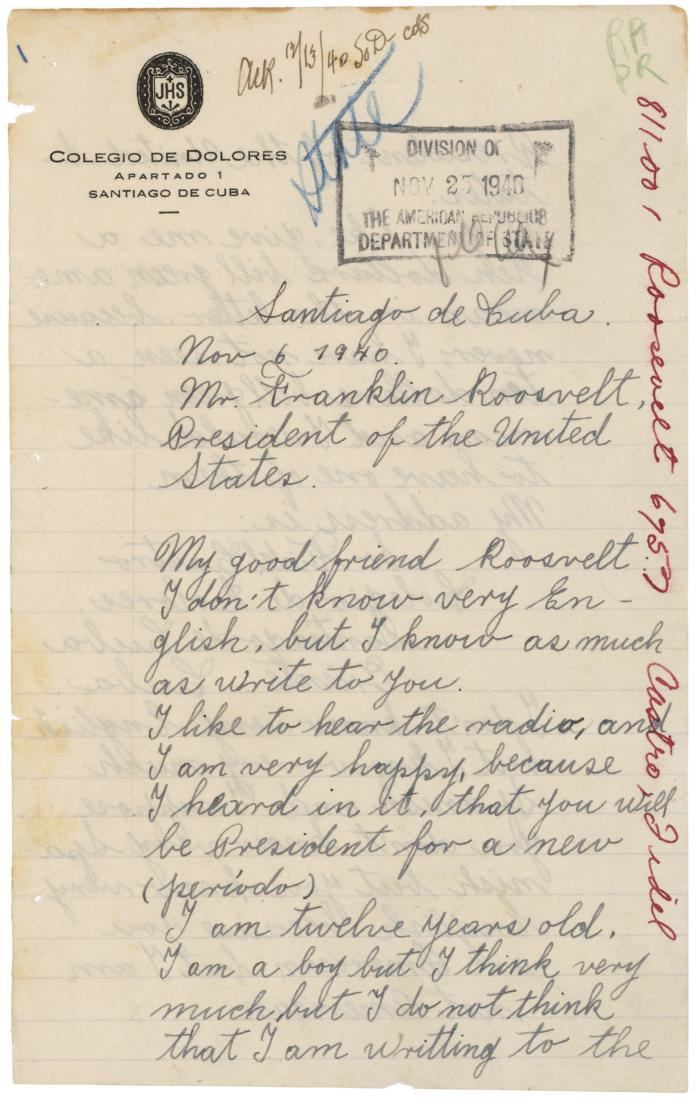 Ack. 12/13/40 SoD- cds
RA
DR
JHS
State
COLEGIO DE DOLORES
APARTADO 1
SANTIAGO DE CUBA
DIVISION OF
NOV 25 1940
THE AMERICAN REPUBLICS
DEPARTMENT OF STATE
811.001 Roosevelt 6957
Castro, Fidel
Santiago de Cuba.
Nov 6 1940.
Mr. Franklin Roosvelt,
President of the United
States.
My good friend Roosvelt
I don't know very En-
glish, but I know as much
as write to you.
I like to hear the radio, and
I am very happy, because
I heard in it, that you will
be President for a new
(período)
I am twelve years old.
I am a boy but I think very
much, but I do not think
that I am writting to the